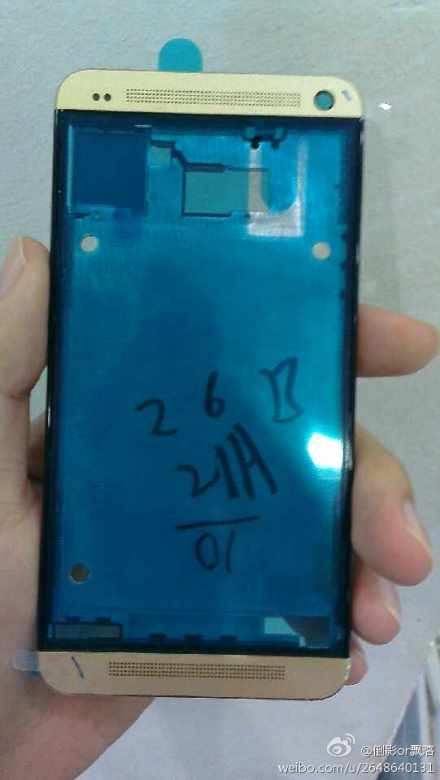 2 6 B
21H
01
@倒影or飘落
weibo.com/u/2648640131